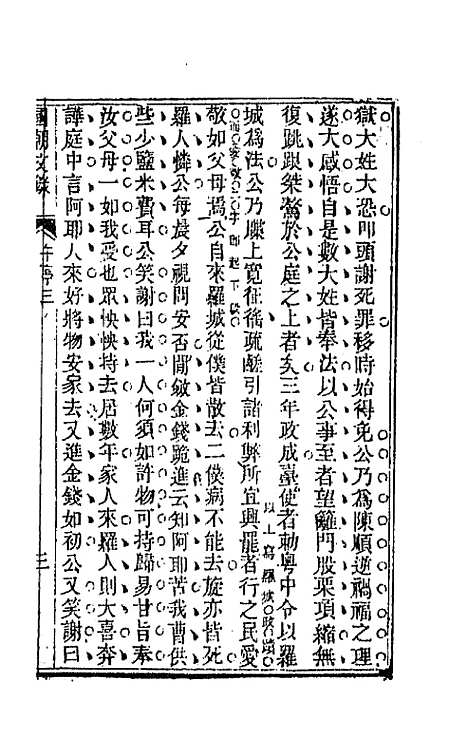 獄大姓大恐叩頭謝死罪移時始得免公乃為陳順逆禍福之理
遂大感悟自是數大姓皆奉法以公事至者望籬門股栗項縮無
復跳踉桀驁於公庭之上者矣三年政成臺使者勅粵中令以羅
以上寫羅城政蹟
城為法公乃牒上寬征徭疏鹺引諸利弊所宜興罷者行之民愛
而愛敬二字即起下段
敬如父母焉公自來羅城從僕皆散去二僕病不能去旋亦皆死
羅人憐公每晨夕視問安否閒斂金錢跪進云知阿耶苦我曹供
些少鹽米費耳公笑謝曰我一人何須如許物可持歸易甘旨奉
汝父母一如我受也眾怏怏持去居數年家人來羅人則大喜奔
譁庭中言阿耶人來好將物安家去又進金錢如初公又笑謝曰
國朝文錄
三